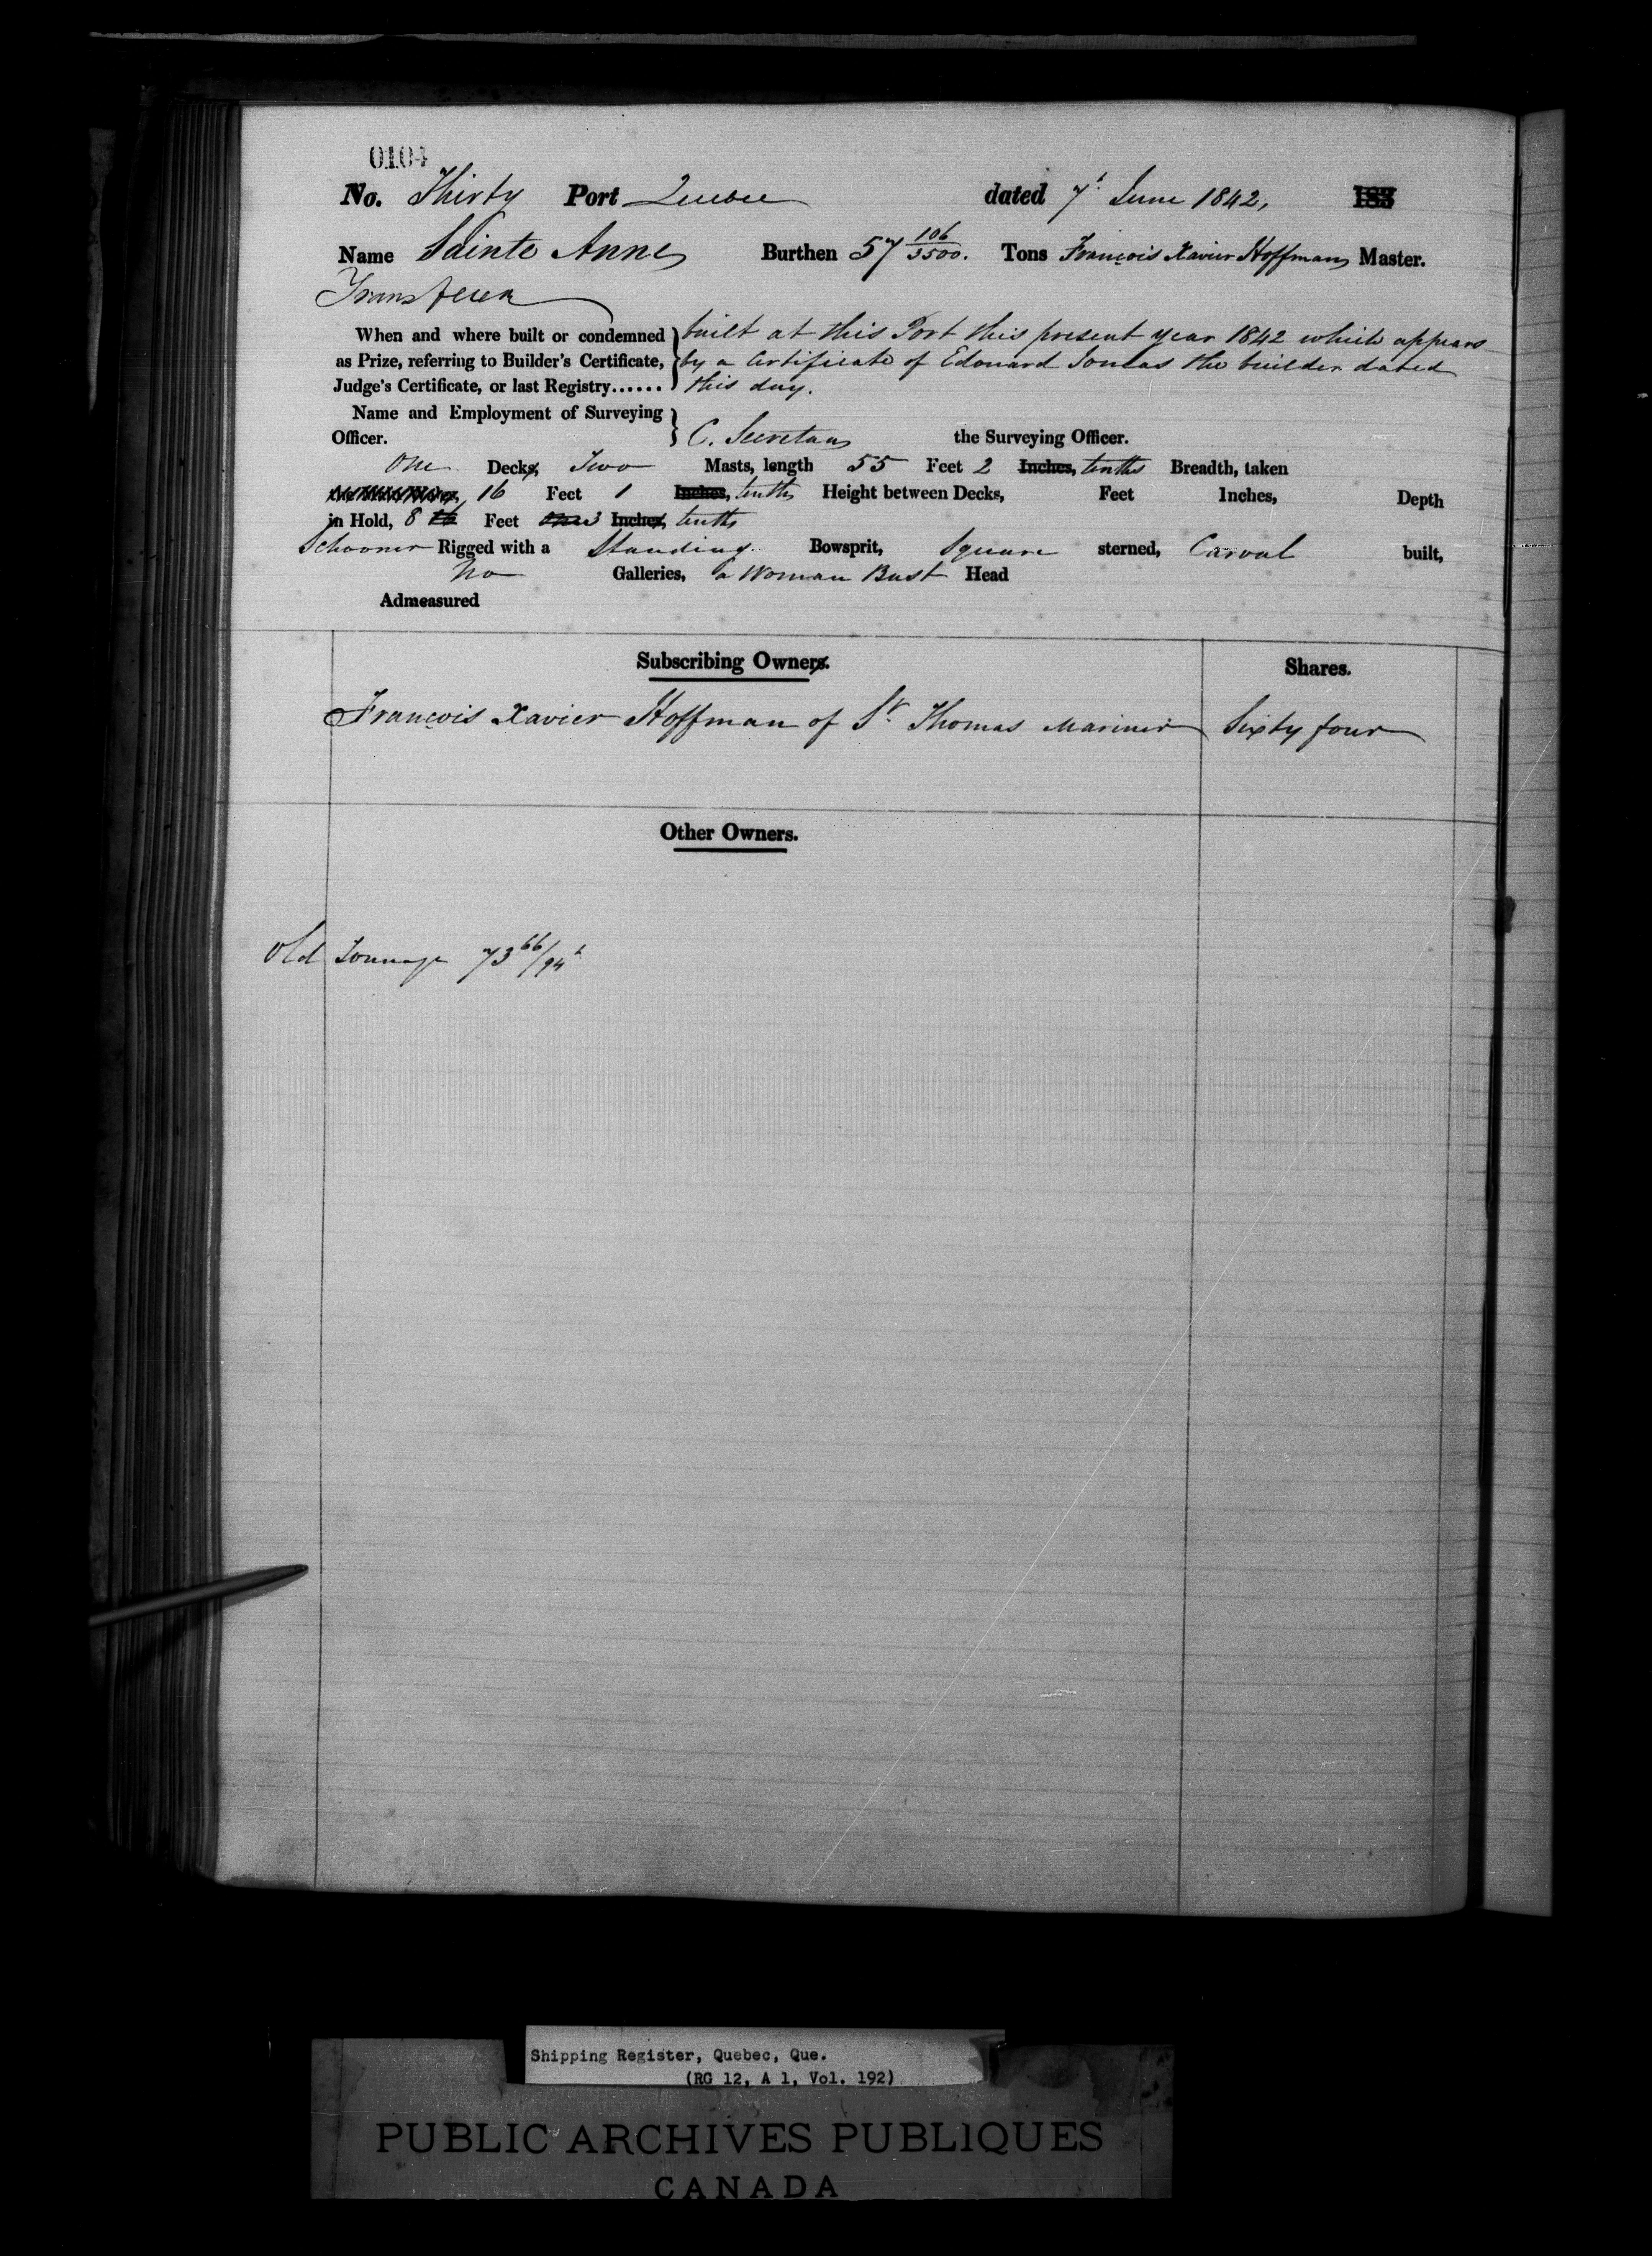 0104
No. Thirty Port Quebec dated 7th June 1842, 183
Name Sainte Anne Burthen 57 106/3500. Tons François Xavier Hoffman Master.
When and where built or condemned built at this Port this present year 1842 which appears
as Prize, referring to Builder's Certificate, by a Certificate of Edouard the builder dated
Judge's Certificate, or last Registry...... this day.
Name and Employment of Surveying
Officer. C. Secretan the Surveying Officer.
One Decks, Two Masts, length 55 Feet 2 Inches, tenths Breadth, taken
16 Feet 1 Inches, tenths Height between Decks, Feet Inches, Depth
in Hold, 8 16 Feet One 3 Inches, tenths
Schooner Rigged with a Standing Bowsprit, Square sterned, Carvel built,
No Galleries, a Woman Bust Head
Admeasured
Subscribing Owners. Shares.
François Xavier Hoffman of St. Thomas Mariner Sixty four
Other Owners.
Old Tonnage 73 66/94
Shipping Register, Quebec, Que.
(RG 12, A 1, Vol. 192)
PUBLIC ARCHIVES PUBLIQUES
CANADA